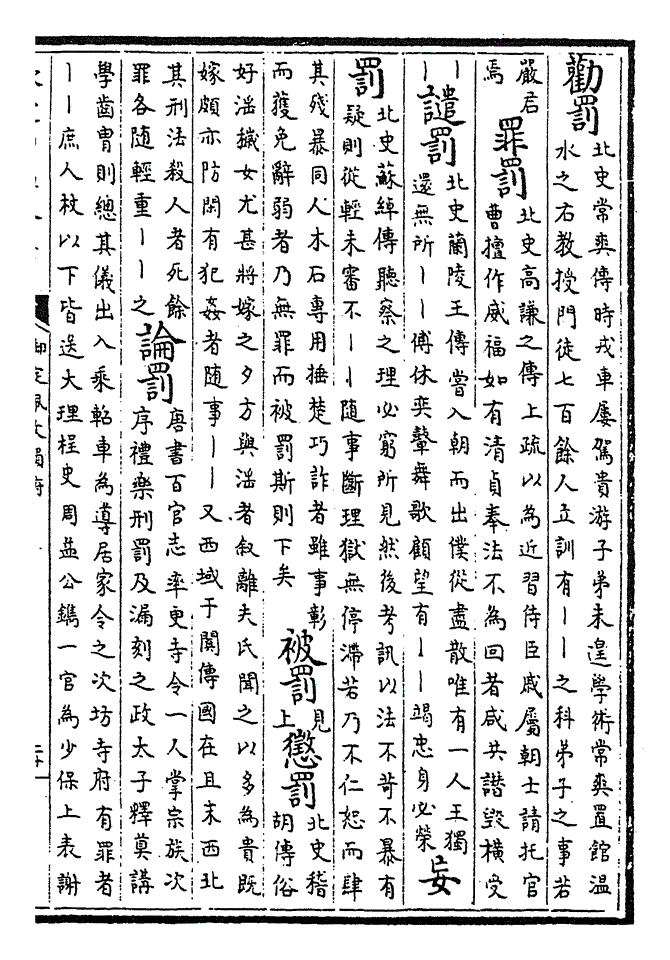 勸罰北史常爽傳時戎車屢駕貴游子弟未遑學術常爽置館温
水之右教授門徒七百餘人立訓有丨丨之科弟子之事若
嚴君
焉
罪罰北史高謙之傳上疏以為近習侍臣戚屬朝士請托官
曹擅作威福如有清貞奉法不為回者咸共譖毀橫受
丨
丨
譴罰北史蘭陵王傳嘗入朝而出僕從盡散唯有一人王獨
還無所丨丨傅休奕鼙舞歌顧望有丨丨竭忠身必榮
妄
罰北史蘇綽傳聽察之理必窮所見然後考訊以法不苛不暴有
疑則從輕未審不丨丨隨事斷理獄無停滯若乃不仁恕而肆
其殘暴同人木石專用捶楚巧詐者雖事彰
而獲免辭弱者乃無罪而被罰斯則下矣
被罰見
上
懲罰北史稽
胡傳俗
好淫穢女尤甚將嫁之夕方與淫者叙離夫氏聞之以多為貴既
嫁頗亦防閑有犯姦者隨事丨丨又西域于闐傳國在且末西北
其刑法殺人者死餘
罪各隨輕重丨丨之
論罰唐書百官志率更寺令一人掌宗族次
序禮樂刑罰及漏刻之政太子釋奠講
學齒胄則總其儀出入乘軺車為導居家令之次坊寺府有罪者
丨丨庶人杖以下皆送大理桯史周益公鐫一官為少保上表謝